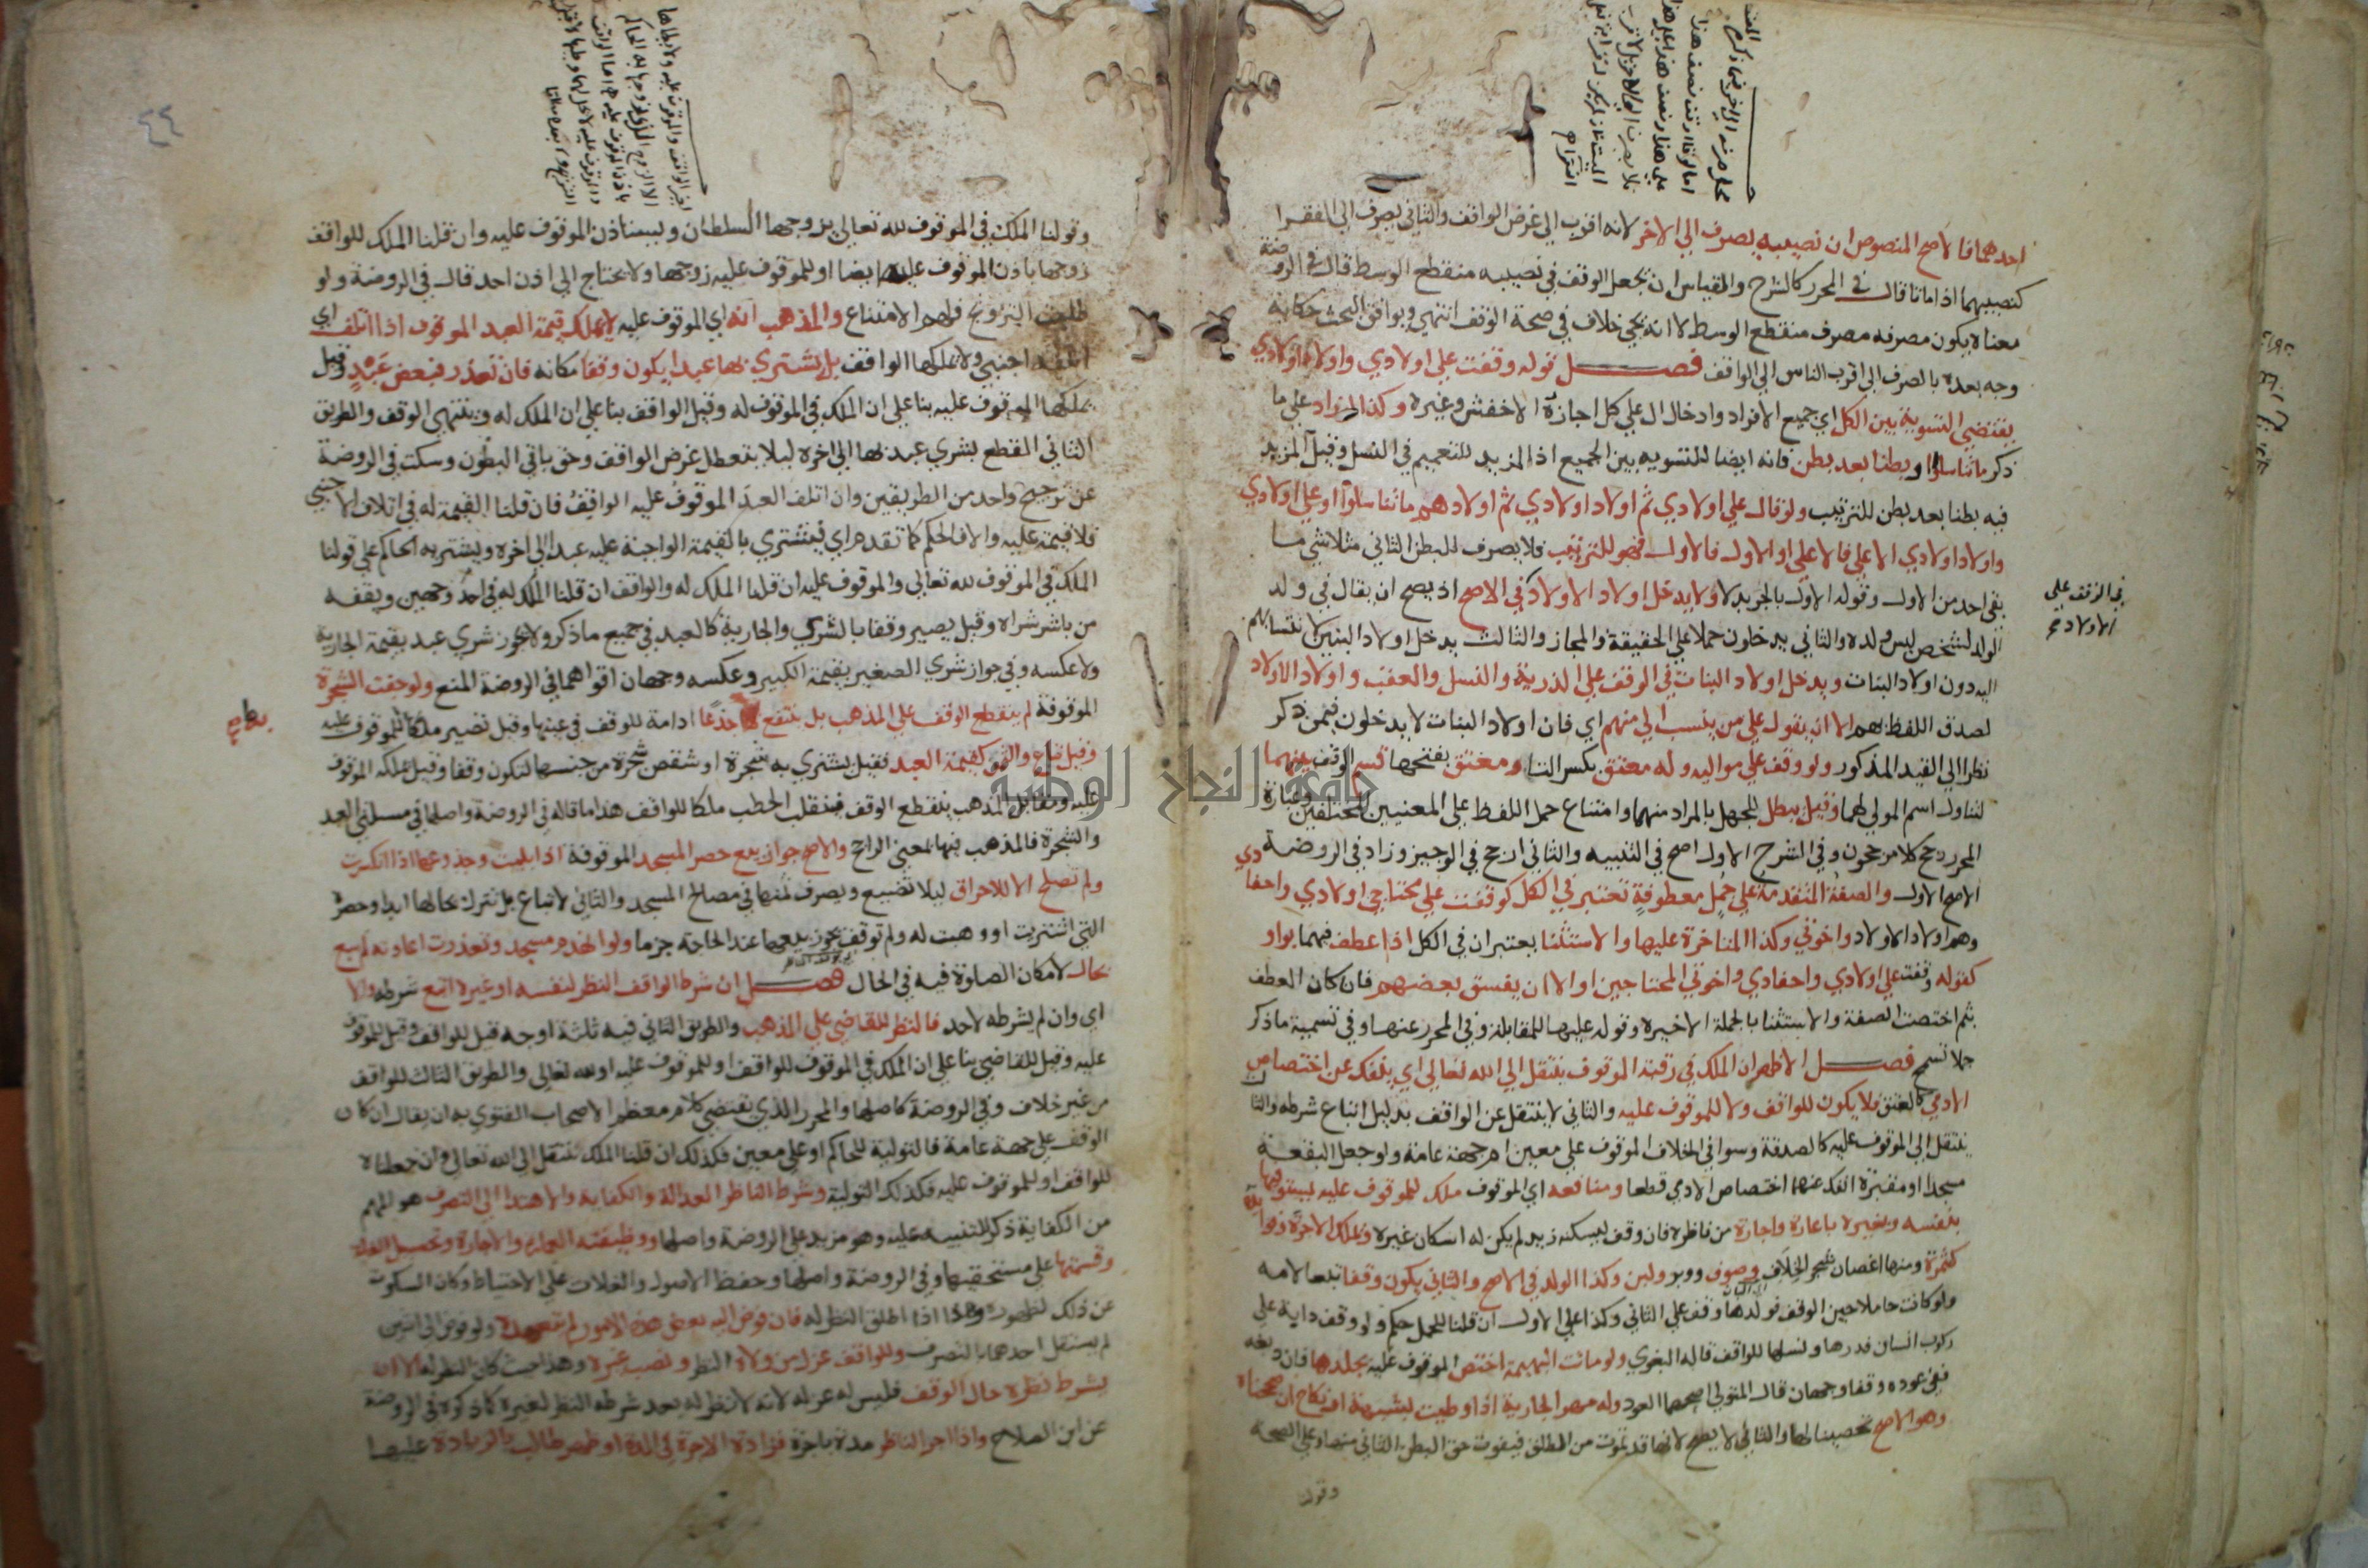 احدهما فالاصح المنصوص ان نصيبه يصرف الي الاخر لانه اقرب الي غرض الواقف والثاني يصرف الي الفقرا
كنصيبهما اذا ماتا قال في المحرر كالشرح والقياس ان يجعل الوقف في نصيبه منقطع الوسط قال في الروضة
معناه يكون مصرفه مصرف منقطع الوسط لا انه يجي خلاف في صحة الوقف انتهي ويوافق البحث حكاية
وجه بعده بالصرف الي اقرب الناس الي الواقف فصل قوله وقفت علي اولادي واولاد اولادي
يقتضي التسوية بين الكل اي جميع الافراد وادخال ال علي كل اجازه الاخفش وغيره وكذا لو زاد علي ما
ذكر ما تناسلوا او بطنا بعد بطن فانه ايضا للتسويه بين الجميع اذ المزيد للتعميم في النسل وقيل المزيد
فيه بطنا بعد بطن للترتيب ولو قال علي اولادي ثم اولاد اولادي ثم اولادهم ما تناسلوا او علي اولادي
واولاد اولادي الاعلي فالاعلي او الاول فالاول فهو للترتيب فلا يصرف للبطن الثاني مثلا شي ما
بقي احد من الاول وقوله الاول بالجر بدلا ولا يدخل اولاد الاولاد في الاصح اذ يصح ان يقال في ولد
الولد لشخص ليس ولده والثاني يدخلون حملا علي الحقيقة والمجاز والثالث يدخل اولاد البنين لانتسابهم
اليه دون اولاد البنات ويدخل اولاد البنات في الوقف علي الذرية والنسل والعقب واولاد الاولاد
لصدق اللفظ بهم الا ان يقول علي من ينسب الي منهم اي فان اولاد البنات لا يدخلون فيمن ذكر
نظرا الي القيد المذكور ولو وقف علي مواليه وله معتق بكسر التا ومعتق بفتحها قسم الوقف بينهما
لتناول اسم المولي لهما وقيل يبطل للجهل بالمراد منهما وامتناع حمل اللفظ علي المعنيين المختلفين وعبارة
المحرر رجح كلا مرجحون وفي الشرح الاول اصح في التنبيه والثاني ارجح في الوجيز وزاد في الروضة
الاصح الاول والصفة المتقدمة علي جمل معطوفة تعتبر في الكل كوقفت علي محتاجي اولادي واحفادي
وهم اولاد الاولاد واخوتي وكذا المتاخرة عليها والاستثنا يعتبران في الكل اذا عطف فيهما بواو
كقوله وقفت علي اولادي واحفادي واخوتي المحتاجين او الا ان يفسق بعضهم فان كان العطف
بثم اختصت الصفة والاستثنا بالجملة الاخيرة وقوله عليها للمقابلة وفي المحرر عنها وفي تسمية ما ذكر
جملا تسمح فصل الاظهر ان الملك في رقبة الموقوف ينتقل الي الله تعالي اي ينفك عن اختصاص
الادمي كالعتق فلا يكون للواقف ولا للموقوف عليه والثاني لا ينتقل عن الواقف بدليل اتباع شرطه والثالث
ينتقل الي الموقوف عليه كالصدقة وسوا في الخلاف الموقوف علي معين ام جهة عامة ولو جعل البقعة
مسجدا او مقبرة انفك عنهما اختصاص الادمي قطعا ومنافعه اي الموقوف ملك للموقوف عليه يستوفيها
بنفسه وبغيره باعارة واجارة من ناظره فان وقف ليسكنه زيد لم يكن له اسكان غيره وتملك الاجرة وفوايده
كثمرة ومنها اغصان شجر الخلاف وصوف ووبر ولبن وكذا الولد في الاصح والثاني يكون وقفا تبعا لامه
ولو كانت حاملا حين الوقف فولدها وقف علي الثاني وكذا علي الاول ان قلنا للحمل حكم ولو وقف داية علي
ركوب انسان فدرها ونسلها للواقف قاله البغوي ولو ماتت البهيمة اختص الموقوف عليه بجلدها فان دبغه
ففي عوده وقفا وجهان قال المتولي اصحهما العود وله مهر الجارية اذا وطيت بشبهة او نكاح ان صححناه
وهو الاصح تحصينا لها والثاني لا يصح لانها قد تموت من الطلق فيفوت حق البطن الثاني منها وعلي الصحة
وقولنا
في الوقف علي
الاولاد
وقولنا الملك في الموقوف لله تعالي يزوجها السلطان ويستاذن الموقوف عليه وان قلنا الملك للواقف
زوجها باذن الموقوف عليه ايضا او للموقوف عليه زوجها ولا يحتاج الي اذن احد قال في الروضة ولو
طلبت التزويج فلهم الامتناع والمذهب انه اي الموقوف عليه لا يملك قيمة العبد الموقوف اذا اتلف اي
اتلفه اجنبي ولا يملكها الواقف بل يشتري بها عبدا يكون وقفا مكانه فان تعذر فبعض عبد وقيل
يملكها الموقوف عليه بنا علي ان الملك في الموقوف له وقيل الواقف بنا علي ان الملك له وينتهي الوقف والطريق
الثاني القطع بشري عبد بها الي اخره ليلا يتعطل غرض الواقف وحق باقي البطون وسكت في الروضة
عن ترجيح واحد من الطريقين وان اتلف العبد الموقوف عليه او الواقف فان قلنا القيمة له في اتلاف الاجنبي
فلا قيمة عليه والا فالحكم كما تقدم اي فيشتري بالقيمة الواجبة عليه عبد الي اخره ويشتريه الحاكم علي قولنا
الملك في الموقوف لله تعالي والموقوف عليه ان قلنا الملك له والواقف ان قلنا الملك له في احد وجهين ويقفه
من باشر شراه وقيل يصير وقفا بالشري والجارية كالعبد في جميع ما ذكر ولا يجوز شري عبد بقيمة الجارية
ولا عكسه وفي جواز شري الصغير بقيمة الكبير وعكسه وجهان اقواهما في الروضة المنع ولو جفت الشجرة
الموقوفة لم ينقطع الوقف علي المذهب بل ينتفع بها جذعا ادامة للوقف في عينها وقيل تصير ملكا للموقوف عليه
وقيل تباع والثمن كقيمة العبد فقيل يشتري به شجرة او شقص شجرة من جنسها لتكون وقفا وقيل يملكه الموقوف
عليه ومقابل المذهب ينقطع الوقف فينقلب الحطب ملكا للواقف هذا ما قاله في الروضة واصلها في مسلتي العبد
والشجرة فالمذهب فيها بمعني الراجح والاصح جواز بيع حصر المسجد الموقوفة اذا بليت وجذوعها اذا انكسرت
ولم تصلح الا للاحراق ليلا تضيع ويصرف ثمنها في مصالح المسجد والثاني لا تباع بل تترك بحالها ابدا وحصره
التي اشتريت او وهبت له ولم توقف يجوز بيعها عند الحاجة جزما ولو انهدم مسجد وتعذرت اعادته لم يبع
بحال لامكان الصلوة فيه في الحال فصل ان شرط الواقف النظر لنفسه او غيره اتبع شرطه والا
اي وان لم يشرطه لاحد فالنظر للقاضي علي المذهب والطريق الثاني فيه ثلثة اوجه قيل للواقف وقيل للموقوف
عليه وقيل للقاضي بنا علي ان الملك في الموقوف للواقف او للموقوف عليه او لله تعالي والطريق الثالث للواقف
من غير خلاف وفي الروضة كاصلها والمحرر الذي يقتضي كلام معظم الاصحاب الفتوي به ان يقال ان كان
الوقف علي جهة عامة فالتولية للحاكم او علي معين فكذلك ان قلنا الملك ينتقل الي الله تعالي وان جعلناه
للواقف او للموقوف عليه فكذلك التولية وشرط الناظر العدالة والكفاية والاهتدا الي التصرف هو المهم
من الكفاية ذكر للتنبيه عليه وهو مزيد علي الروضة واصلها ووظيفته العمارة والاجارة وتحصيل الغلة
وقسمتها علي مستحقيها وفي الروضة واصلها وحفظ الاصول والغلات علي الاحتياط وكان السكوت
عن ذلك لظهوره وهذا اذا اطلق النظر له فان فوض اليه بعض هذه الامور لم يتعده ولو فوض الي اثنين
لم يستقل احدهما بالتصرف وللواقف عزل من ولاه النظر ونصب غيره وهذا حيث كان النظر له الا ان
يشرط نظره حال الوقف فليس له عزله لانه لا نظر له بعد شرطه النظر لغيره كما ذكره في الروضة
عن ابن الصلاح واذا اجر الناظر مدة باجرة فزادت الاجرة في المدة او ظهر طالب بالزيادة عليها
٤٤
جامعة النجاح الوطنية